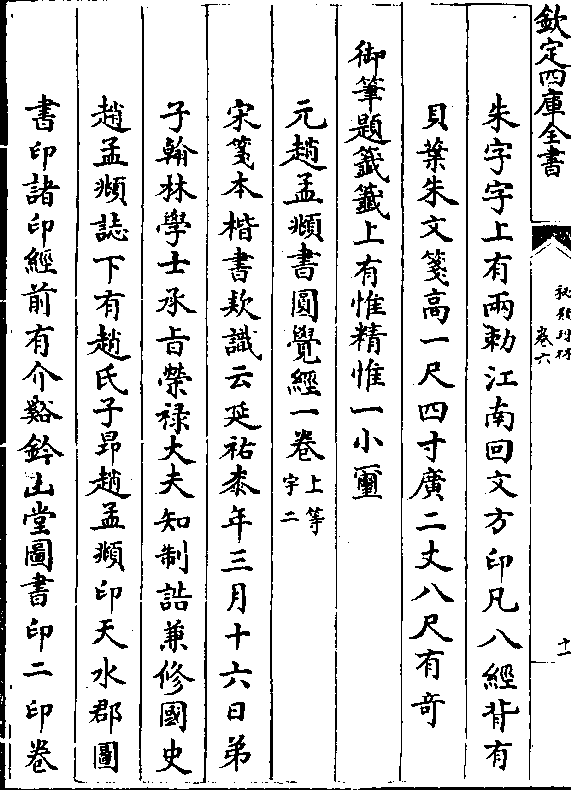 欽定四庫全書
秘殿珠林
卷六
十一
朱字字上有兩勅江南回文方印凡八經背有
貝葉朱文箋高一尺四寸廣二丈八尺有奇
御筆題籤籤上有惟精惟一小璽
元趙孟頫書圓覺經一卷上等字二
宋箋本楷書款識云延祐柒年三月十六日弟
子翰林學士承旨榮禄大夫知制誥兼修國史
趙孟頫誌下有趙氏子昂趙孟頫印天水郡圖
書印諸印經前有介谿鈐山堂圖書印二印卷